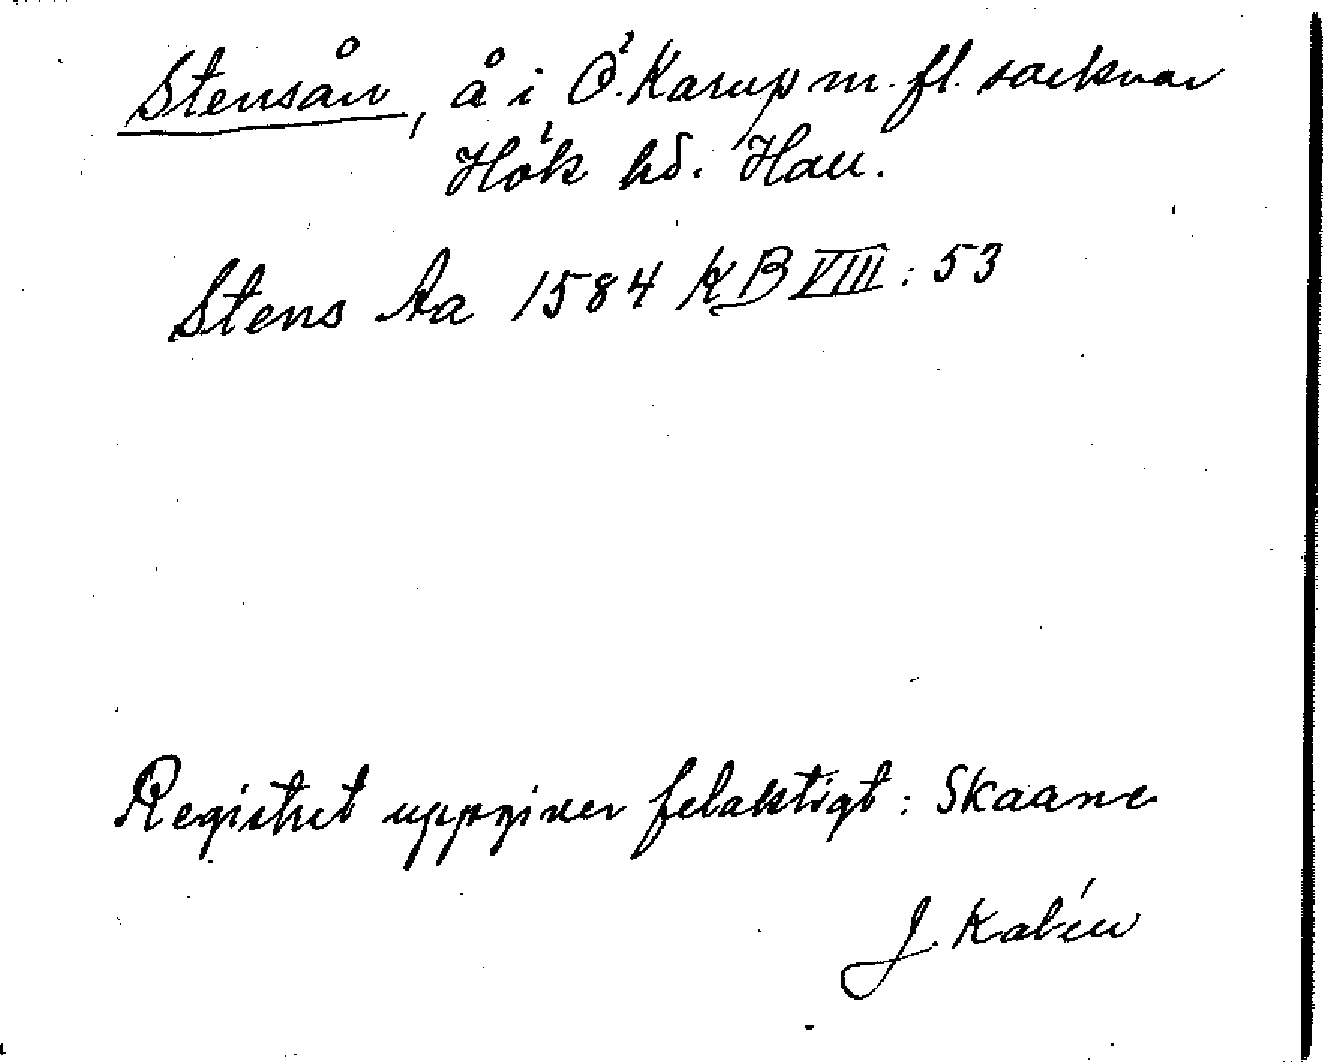 Stensån, å i Ö. Karup m. fl. socknar
Hök hd. Hall.
Stens Aa 1584 KB VIII: 53
Registret uppgiver felaktigt: Skaane
J. Kalén